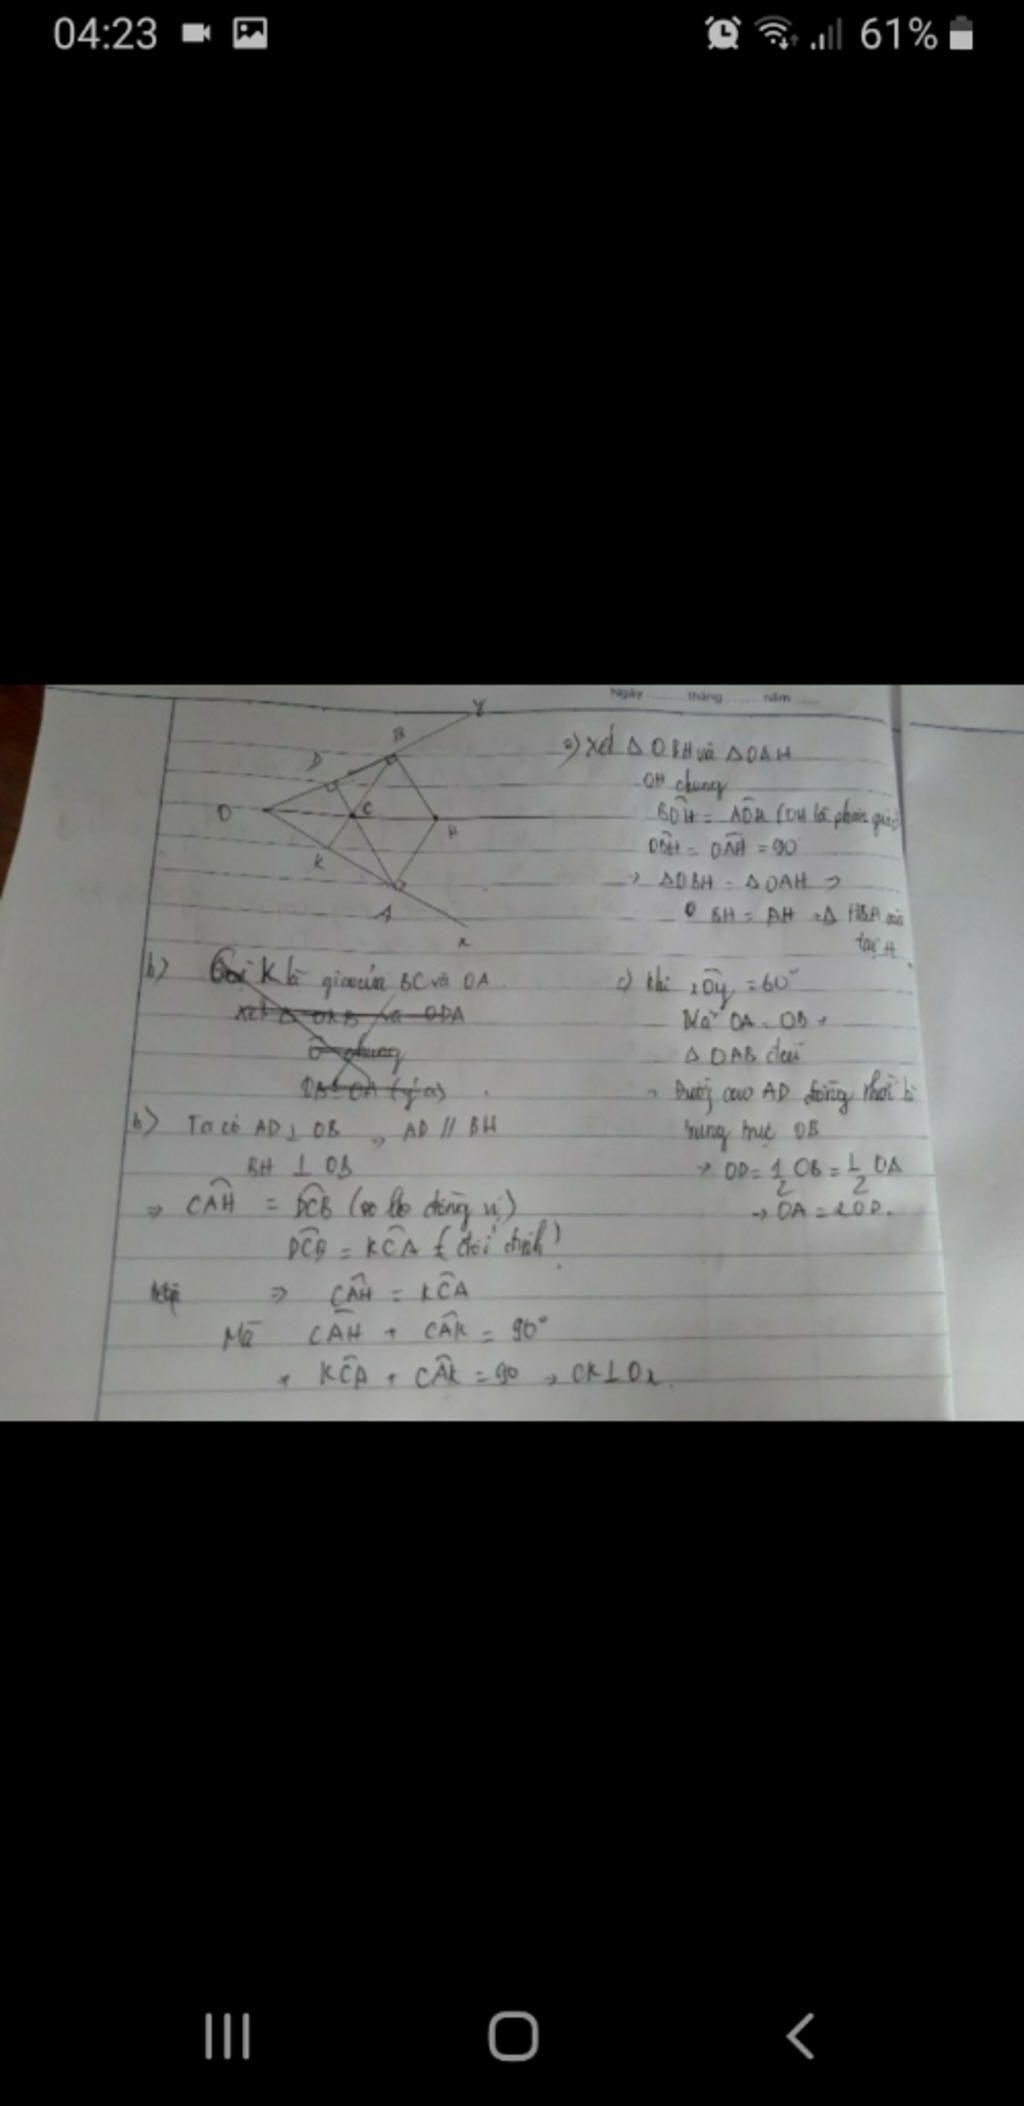 04:23
61%
Ngày ...... tháng ...... năm ......
y
B
D
O
C
H
K
A
x
a) Xét Δ OBH và Δ OAH
OH chung
BÔH = AÔH (OH là phân giác)
OBH = OAH = 90
→ ΔOBH = ΔOAH →
BH = AH → Δ HBA cân
tại H
b) Gọi K là giao của BC và OA
Xét Δ OKB và ODA
Ô chung
OB = OA (ý a)
b) Ta có AD ⊥ OB → AD // BH
BH ⊥ OB
⇒ CAH = DCB (so le đồng vị)
DCB = KCA (đối đỉnh)
⇒ CAH = KCA
Mà CAH + CAK = 90°
KCA + CAK = 90 → CK ⊥ Ox.
c) Khi xÔy = 60°
Mà OA = OB →
Δ OAB đều
→ Đường cao AD đồng thời là
trung trực OB
→ OD = 1/2 OB = 1/2 OA
→ OA = 2OD.